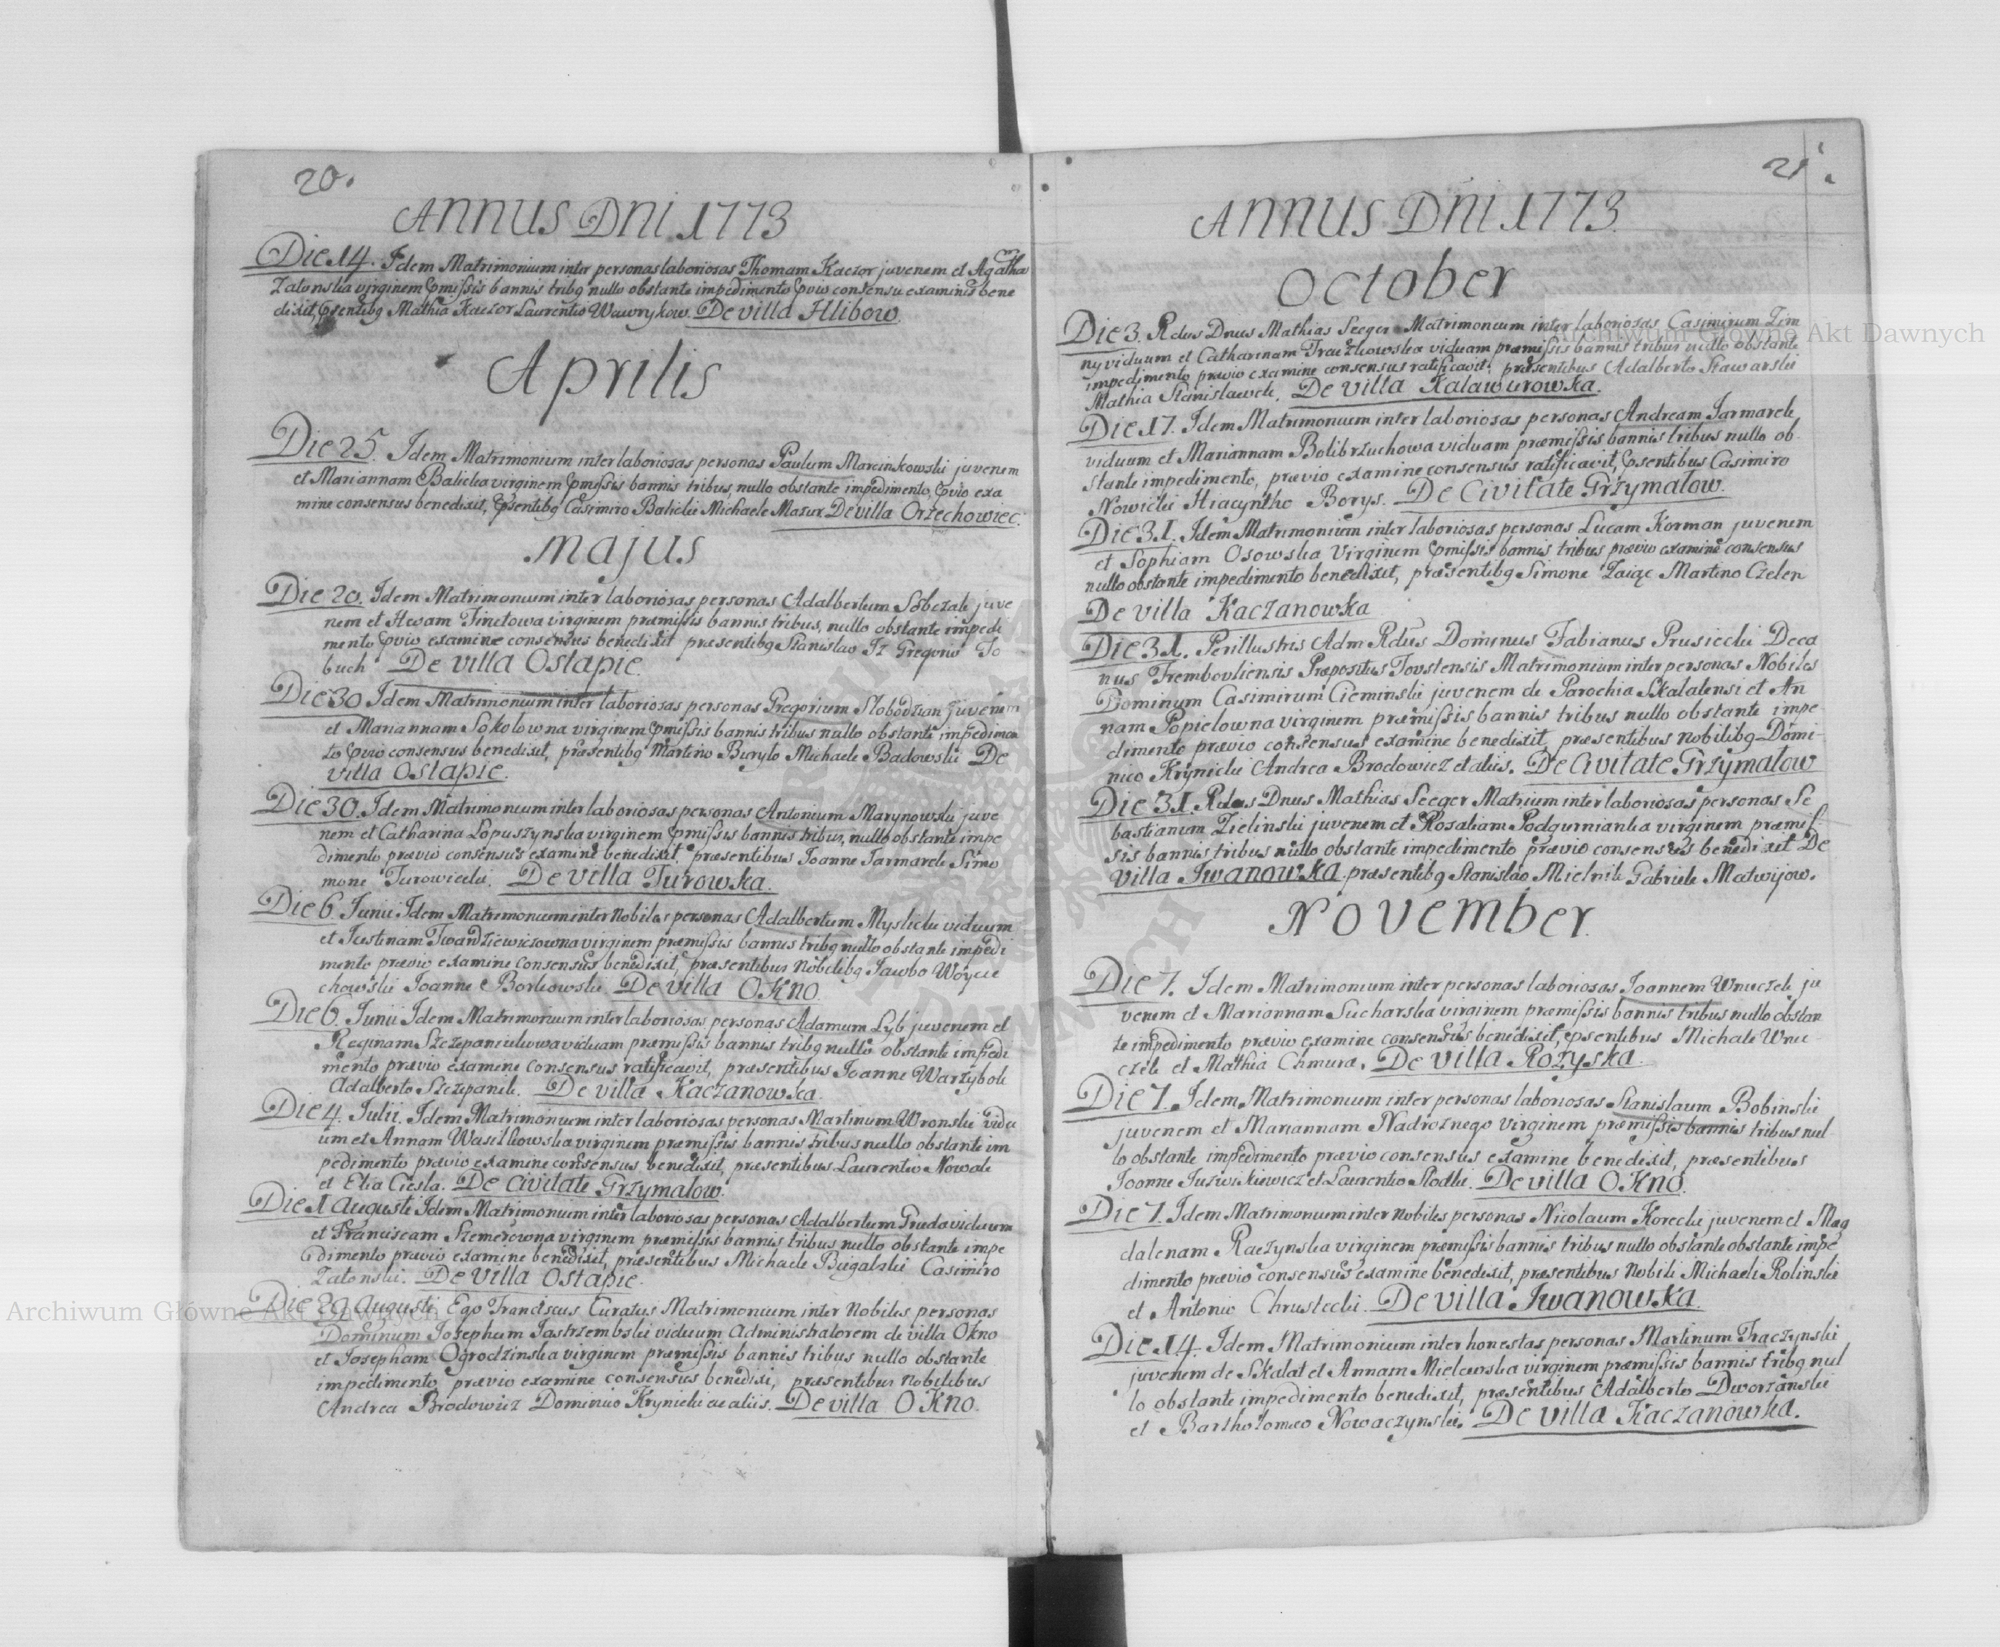 20.
ANNUS DNI 1773
Die 14. Idem Matrimonium inter personas laboriosas Thomam Kaczor juvenem et Agatha
Zatonska virginem pmissis bannis tribq nullo obstante impedimento pvio consensu examinis bene
dixit, psentibq Mathia Kaczor Laurentio Wawrykow. De villa Hlibow.
Aprilis
Die 25. Idem Matrimonium inter laboriosas personas Paulum Marcinkowski juvenem
et Mariannam Balicka virginem pmissis bannis tribus, nullo obstante impedimento, pvio exa
mine consensus benedixit, psentibq Casimiro Balicki Michaele Mazur. De villa Orzechowiec.
Majus
Die 20. Idem Matrimonium inter laboriosas personas Adalbertum Sobczak juve
nem et Hewam Tinctowa virginem præmissis bannis tribus, nullo obstante impedi
mento pvio examine consensus benedixit præsentibq Stanislao Iz Gregorio To
buch De villa Ostapie.
Die 30 Idem Matrimonium inter laboriosas personas Gregorium Slobodzian juvenem
et Mariannam Sokolowna virginem pmissis bannis tribus nullo obstante impedimen
to pvio consensus benedixit, præsentibq Martino Burylo Michaele Badowski De
villa Ostapie.
Die 30. Idem Matrimonium inter laboriosas personas Antonium Marynowski juve
nem et Catharina Lopuszynska virginem pmissis bannis tribus, nullo obstante impe
dimento prævio consensus examine benedixit, præsentibus Joanne Jarmarek Simo
mone Turowiecki. De villa Turowka.
Die 6 Junii Idem Matrimonium inter Nobiles personas Adalbertum Myslicki viduum
et Justinam Twardziewiczowna virginem præmissis bannis tribq nullo obstante impedi
mento prævio examine consensus benedixit, præsentibus Nobilibq Jacobo Woycie
chowski Joanne Borkowski. De villa OKno.
Die 6. Junii Idem Matrimonium inter laboriosas personas Adamum Lyb juvenem et
Reginam Szczepaniukowa viduam præmissis bannis tribq nullo obstante impedi
mento prævio examine consensus ratificavit, præsentibus Joanne Warzybok
Adalberto Szczepanik. De villa Kaczanowka.
Die 4. Julii. Idem Matrimonium inter laboriosas personas Martinum Wronski vidu
um et Annam Wasilkowska virginem præmissis bannis tribus nullo obstante im
pedimento prævio examine consensus benedixit, præsentibus Laurentio Nowak
et Elia Ciesla. De Civitate Grzymalow.
Die 1 Augusti Idem Matrimonium inter laboriosas personas Adalbertum Gruda viduum
et Franciscam Szemerowna virginem præmissis bannis tribus nullo obstante impe
dimento prævio examine benedixit, præsentibus Michaele Bugalski Casimiro
Zatonski. De villa Ostapie.
Die 29 Augusti, Ego Franciscus Curatus Matrimonium inter Nobiles personas
Dominum Josephum Jastrzembski viduum Administratorem de villa Okno
et Josepham Ogrodzinska virginem præmissis bannis tribus nullo obstante
impedimento, prævio examine consensus benedixi, præsentibus nobilibus
Andrea Brodowicz Dominico Krynicki ac aliis. De villa OKno.
21.
ANNUS DNI 1773.
October
Die 3. Rdus Dnus Mathias Seeger Matrimonium inter laboriosas Casimirum Zim
ny viduum et Catharinam Traczkowska viduam præmissis bannis tribus nullo obstante
impedimento prævio examine consensus ratificavit, præsentibus Adalberto Stawarski
Mathia Stanislawek. De villa Kalawurowka.
Die 17. Idem Matrimonium inter laboriosas personas Andream Jarmarek
viduum et Mariannam Bolibrzuchowa viduam præmissis bannis tribus nullo ob
stante impedimento, prævio examine consensus ratificavit, psentibus Casimiro
Nowicki Hiacyntho Borys. De Civitate Grzymalow.
Die 31. Idem Matrimonium inter laboriosas personas Lucam Korman juvenem
et Sophiam Osowska virginem pmissis bannis tribus prævio examine consensus
nullo obstante impedimento benedixit, præsentibq Simone Zaiąc Martino Czelen
De villa Kaczanowka
Die 31. Perillustris Adm Rdus Dominus Fabianus Prusiecki Deca
nus Trembovliensis Præpositus Toustensis Matrimonium inter personas Nobiles
Dominum Casimirum Cieminski juvenem de Parochia Skalatensi et An
nam Popielowna virginem præmissis bannis tribus nullo obstante impe
dimento prævio consensus examine benedixit, præsentibus nobilibq Domi-
nico Krynicki Andrea Brodowicz et aliis. De Civitate Grzymalow
Die 31. Rdus Dnus Mathias Seeger Matrium inter laboriosas personas Se
bastianum Zielinski juvenem et Rosaliam Podgurnianka virginem præmis
sis bannis tribus nullo obstante impedimento prævio consensus benedixit De
villa Iwanowka præsentibq Stanislao Mielnik Gabriele Matwijow.
November.
Die 7. Idem Matrimonium inter personas laboriosas Joannem Wnuczek ju
venem et Mariannam Sucharska virginem præmissis bannis tribus nullo obstan
te impedimento prævio examine consensus benedixit, psentibus Michaele Wnu
czek et Mathia Chmura. De villa Rożyska.
Die 7. Idem Matrimonium inter personas laboriosas Stanislaum Bobinski
juvenem et Mariannam Nadroznego virginem præmissis bannis tribus nul-
lo obstante impedimento prævio consensus examine benedixit, præsentibus
Joanne Juzwikiewicz et Laurentio Slodki. De villa OKno.
Die 7. Idem Matrimonium inter Nobiles personas Nicolaum Korecki juvenem et Mag
dalenam Raczynska virginem præmissis bannis tribus nullo obstante obstante impe
dimento prævio consensus examine benedixit, præsentibus Nobili Michaeli Rolinski
et Antonio Chrustecki. De villa Iwanowka.
Die 14. Idem Matrimonium inter honestas personas Martinum Traczynski
juvenem de Skalat et Annam Mielowska virginem præmissis bannis tribq nul
lo obstante impedimento benedixit, præsentibus Adalberto Dworzanski
et Bartholomæo Nowaczynski. De Villa Kaczanowka.
Archiwum Główne Akt Dawnych
Archiwum Główne Akt Dawnych